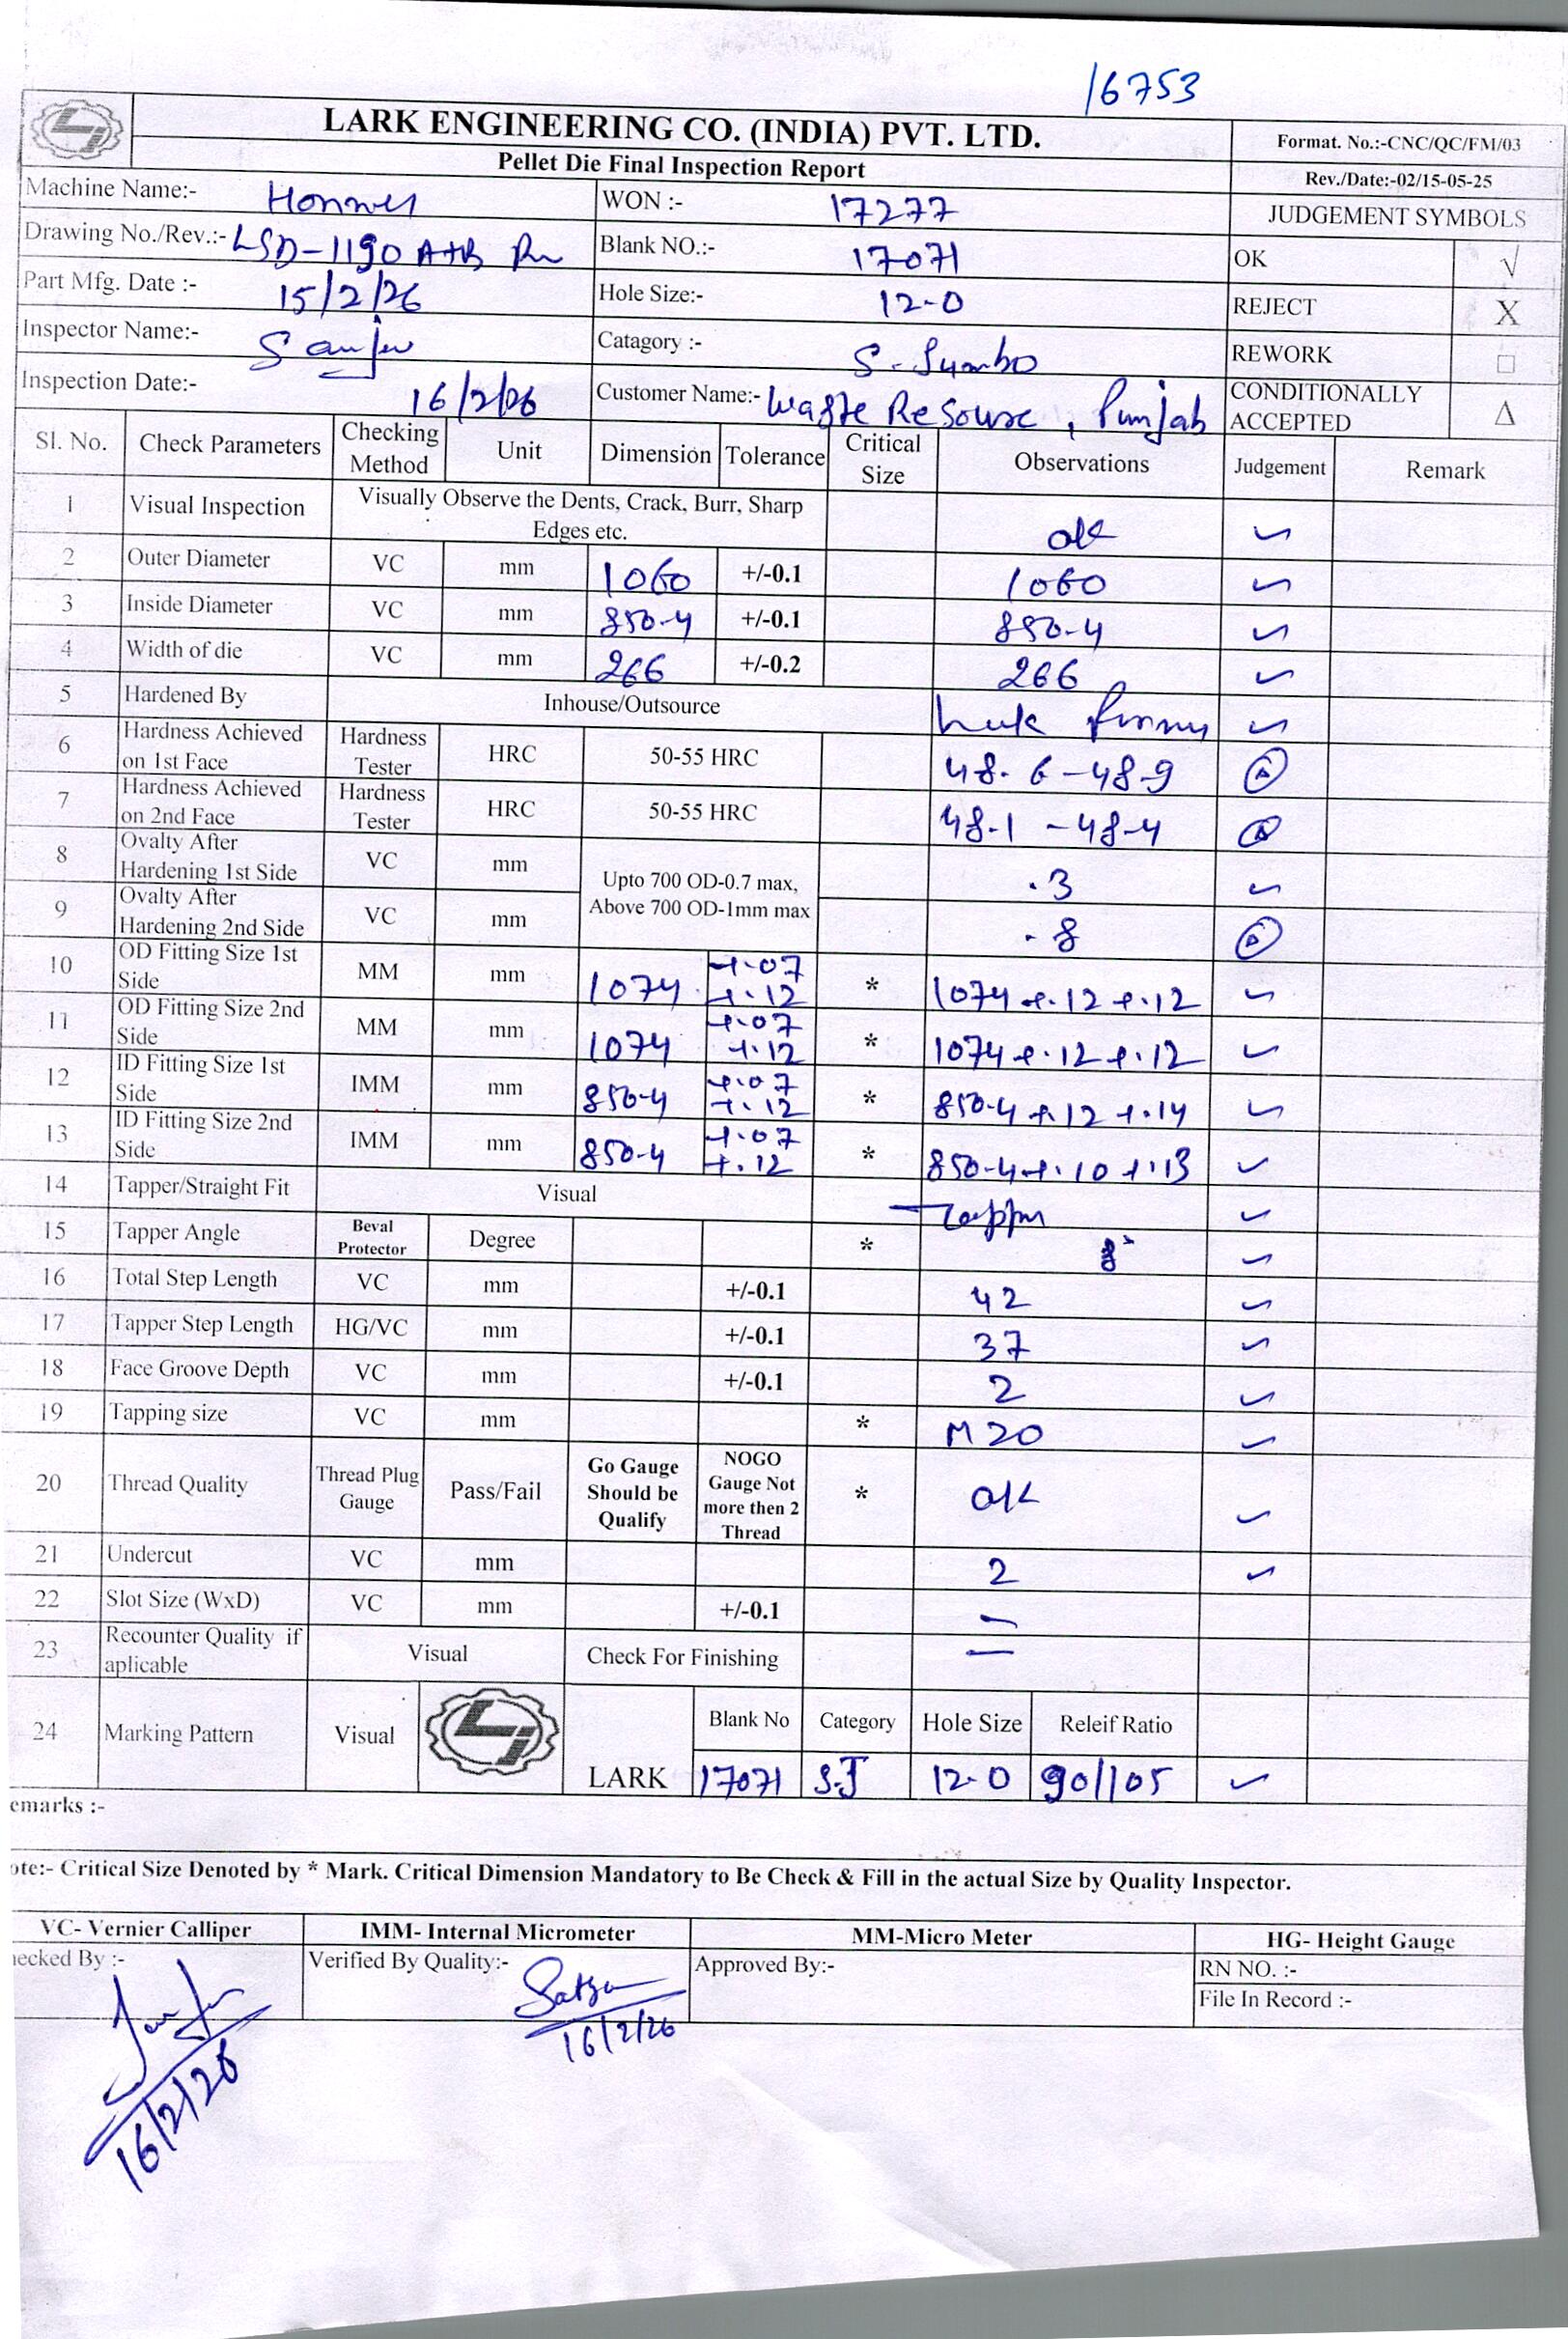 16753
LARK ENGINEERING CO. (INDIA) PVT. LTD.
Pellet Die Final Inspection Report
Format. No.:-CNC/QC/FM/03
Rev./Date:-02/15-05-25
Machine Name:-
WON :- 17277
JUDGEMENT SYMBOLS
Drawing No./Rev.:- LSD-1190 A+B
Blank NO.:- 17071
OK √
Part Mfg. Date :- 15/2/26
Hole Size:- 12-0
REJECT X
Inspector Name:- Sanjev
Catagory :- S-Jumbo
REWORK □
Inspection Date:- 16/2/26
Customer Name:- Waste Resourc, Punjab
CONDITIONALLY ACCEPTED Δ
Sl. No. Check Parameters Checking Method Unit Dimension Tolerance Critical Size Observations Judgement Remark
1 Visual Inspection Visually Observe the Dents, Crack, Burr, Sharp Edges etc. ok ✓
2 Outer Diameter VC mm 1060 +/-0.1 1060 ✓
3 Inside Diameter VC mm 850-4 +/-0.1 850-4 ✓
4 Width of die VC mm 266 +/-0.2 266 ✓
5 Hardened By Inhouse/Outsource ✓
6 Hardness Achieved on 1st Face Hardness Tester HRC 50-55 HRC 48.6-48-9 Δ
7 Hardness Achieved on 2nd Face Hardness Tester HRC 50-55 HRC 48-1 -48-4 Δ
8 Ovalty After Hardening 1st Side VC mm Upto 700 OD-0.7 max, Above 700 OD-1mm max .3 ✓
9 Ovalty After Hardening 2nd Side VC mm .8 Δ
10 OD Fitting Size 1st Side MM mm 1074 +.07 +.12 * 1074 +.12 +.12 ✓
11 OD Fitting Size 2nd Side MM mm 1074 +.07 +.12 * 1074 +.12 +.12 ✓
12 ID Fitting Size 1st Side IMM mm 850-4 +.07 +.12 * 850-4 +.12 +.14 ✓
13 ID Fitting Size 2nd Side IMM mm 850-4 +.07 +.12 * 850-4 +.10 +.13 ✓
14 Tapper/Straight Fit Visual Tapper ✓
15 Tapper Angle Beval Protector Degree * 8° ✓
16 Total Step Length VC mm +/-0.1 42 ✓
17 Tapper Step Length HG/VC mm +/-0.1 37 ✓
18 Face Groove Depth VC mm +/-0.1 2 ✓
19 Tapping size VC mm * M20 ✓
20 Thread Quality Thread Plug Gauge Pass/Fail Go Gauge Should be Qualify NOGO Gauge Not more then 2 Thread * ok ✓
21 Undercut VC mm 2 ✓
22 Slot Size (WxD) VC mm +/-0.1 —
23 Recounter Quality if aplicable Visual Check For Finishing —
24 Marking Pattern Visual LARK Blank No Category Hole Size Releif Ratio
17071 S.J 12-0 90/105 ✓
emarks :-
ote:- Critical Size Denoted by * Mark. Critical Dimension Mandatory to Be Check & Fill in the actual Size by Quality Inspector.
VC- Vernier Calliper IMM- Internal Micrometer MM-Micro Meter HG- Height Gauge
ecked By :- Verified By Quality:- Approved By:- RN NO. :-
File In Record :-
16/2/26
16/2/26